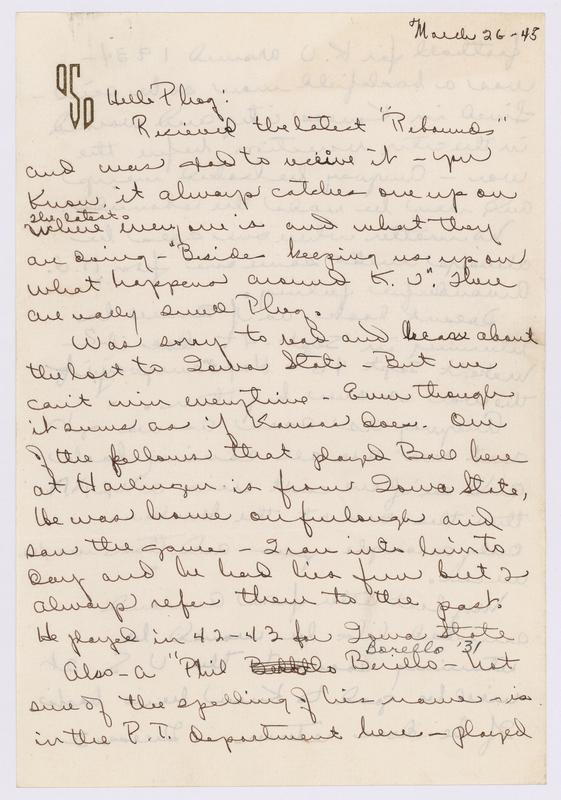 March 26-45
Hello Phog:
Recieved the latest "Rebounds"
and was glad to receive it - you
Know, it always catches one up on
the latest
Where everyone is and what they
are doing - "Beside keeping us up on
what happens around K. U". There
are really swell Phog.
Was sorry to read and hear about
the lost to Iowa State - But we
can't win everytime - Even though
it seems as if Kansas does. One
of the fellows that played Ball here
at Harlingen is from Iowa State,
He was home on furlough and
saw the game - I ran into him to
Day and he had his fun but I
always refer them to the past.
He played in 42-43 for Iowa State
Borello '31
Also - a "Phil Berillo - not
sure of the spelling of his name - is
in the P.T. Department here - played